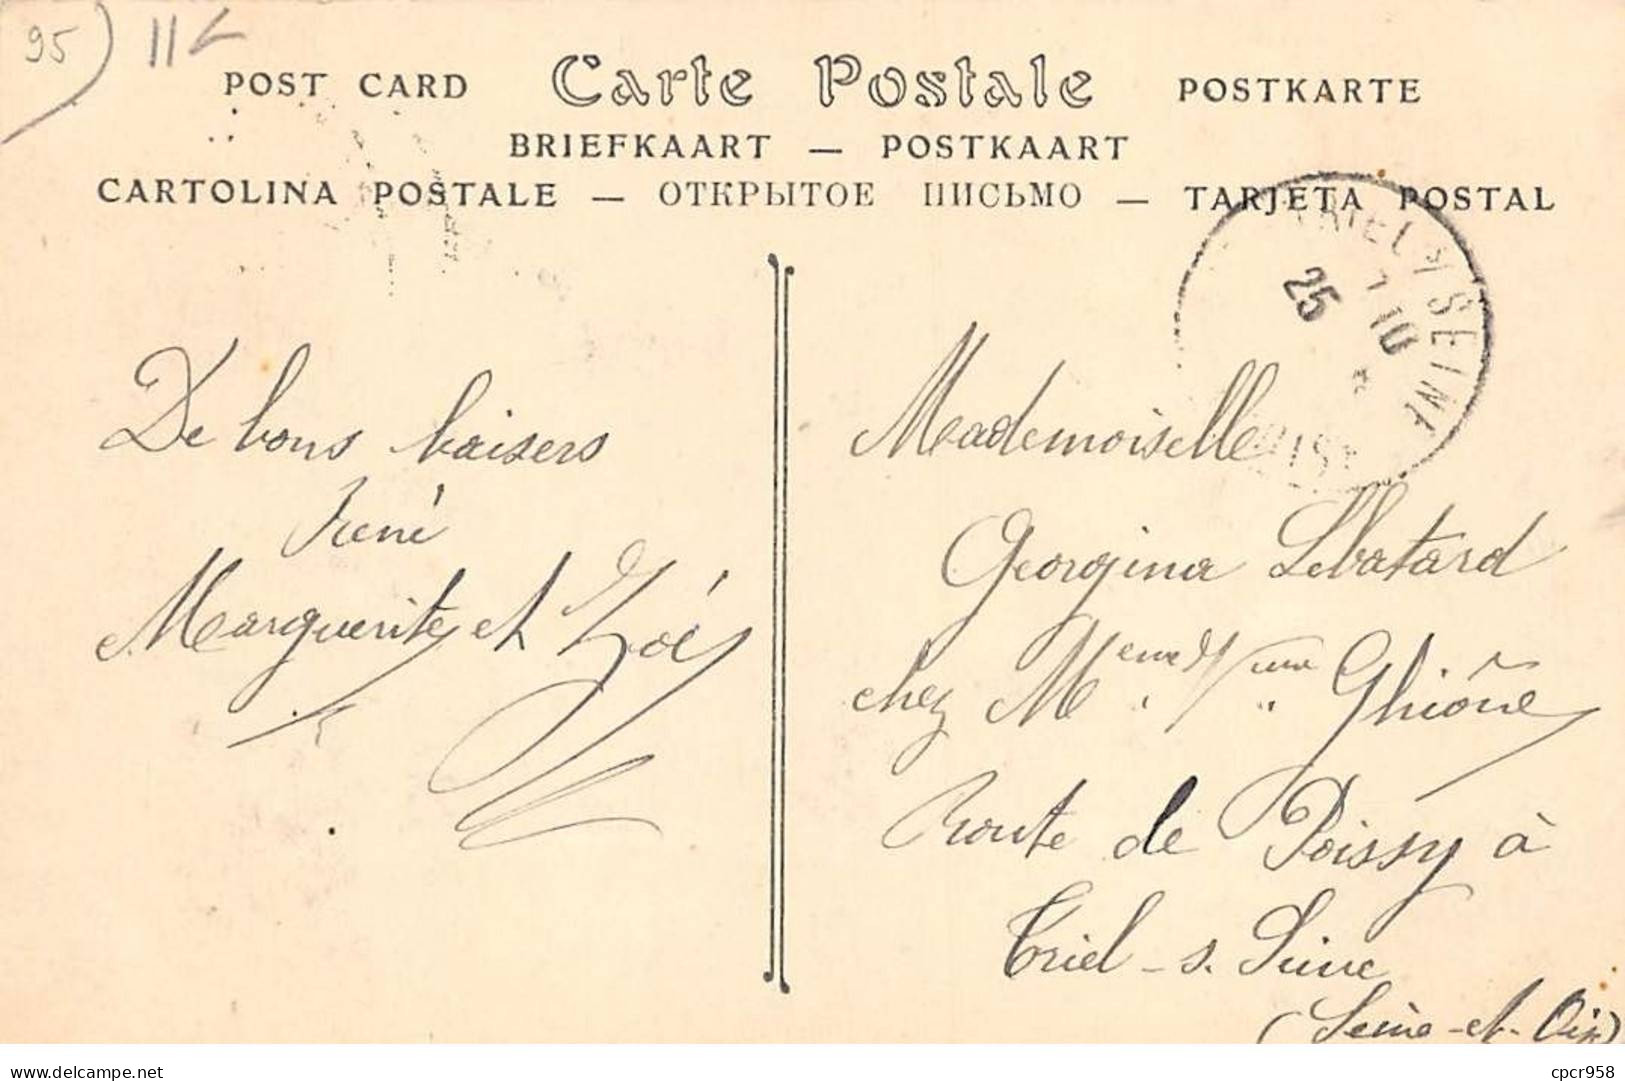 95) 11
POST CARD Carte Postale POSTKARTE
BRIEFKAART — POSTKAART
CARTOLINA POSTALE — ОТКРЫТОЕ ПИСЬМО — TARJETA POSTAL
TRIEL S SEINE
25 10
De bons baisers
René
Marguerite et Zoé
Mademoiselle
Georgina Lebatard
chez M Ghiône
Route de Poissy à
Triel-s. Seine
(Seine-et-Oise)
cpcr958